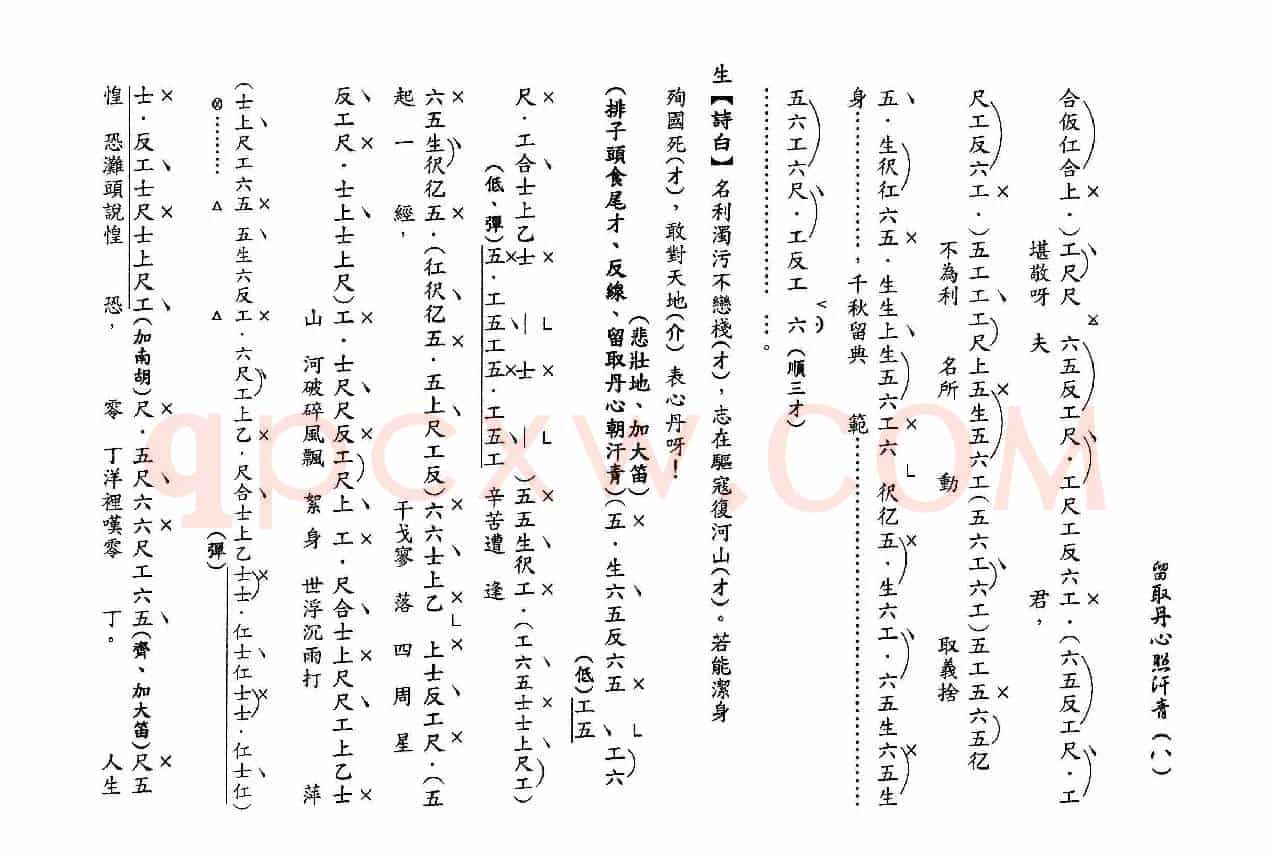 留取丹心照汗青(八)
合仮仁合上·)工尺尺 六五反工尺·工尺工反六工·(六五反工尺·工
堪敬呀 夫 君,
尺工反六工·)五工工工尺上五生五六工(五六工六工)五工五六五亿
不為利 名所 動 取義捨
五·生伬仜六五·生生上生五六工六 伬亿五·生六工·六五生六五生
身……,千秋留典 範……
五六工六尺·工反工 六(順三才)
……。
生【詩白】名利濁污不戀棧(才),志在驅寇復河山(才)。若能潔身
殉國死(才),敢對天地(介)表心丹呀!
(悲壯地、加大笛)
(排子頭食尾才、反線、留取丹心朝汗青)(五·生六五反六五 工六
(低)工五
尺·工合士上乙士 士 )五五生伬工·(工六五士士上尺工)
(低、彈)五·工五工五·工五工 辛苦遭 逢
六五生伬亿五·(仜伬亿五·五上尺工反)六六士上乙 上士反工尺·(五
起一 經, 干戈寥 落 四 周 星
反工尺·士上士上尺)工·士尺尺反工尺上 工·尺合士上尺尺工上乙士
山 河破碎風飄 絮 身 世浮沉雨打 萍
(士上尺工六五 五生六反工·六尺工上乙·尺合士上乙士士·仁士仁士士·仁士仁)
(彈)
士·反工士尺士上尺工(加南胡)尺·五尺六六尺工六五(齊、加大笛)尺五
惶 恐灘頭說惶 恐, 零 丁洋裡嘆零 丁。 人生
qpcxw.COM